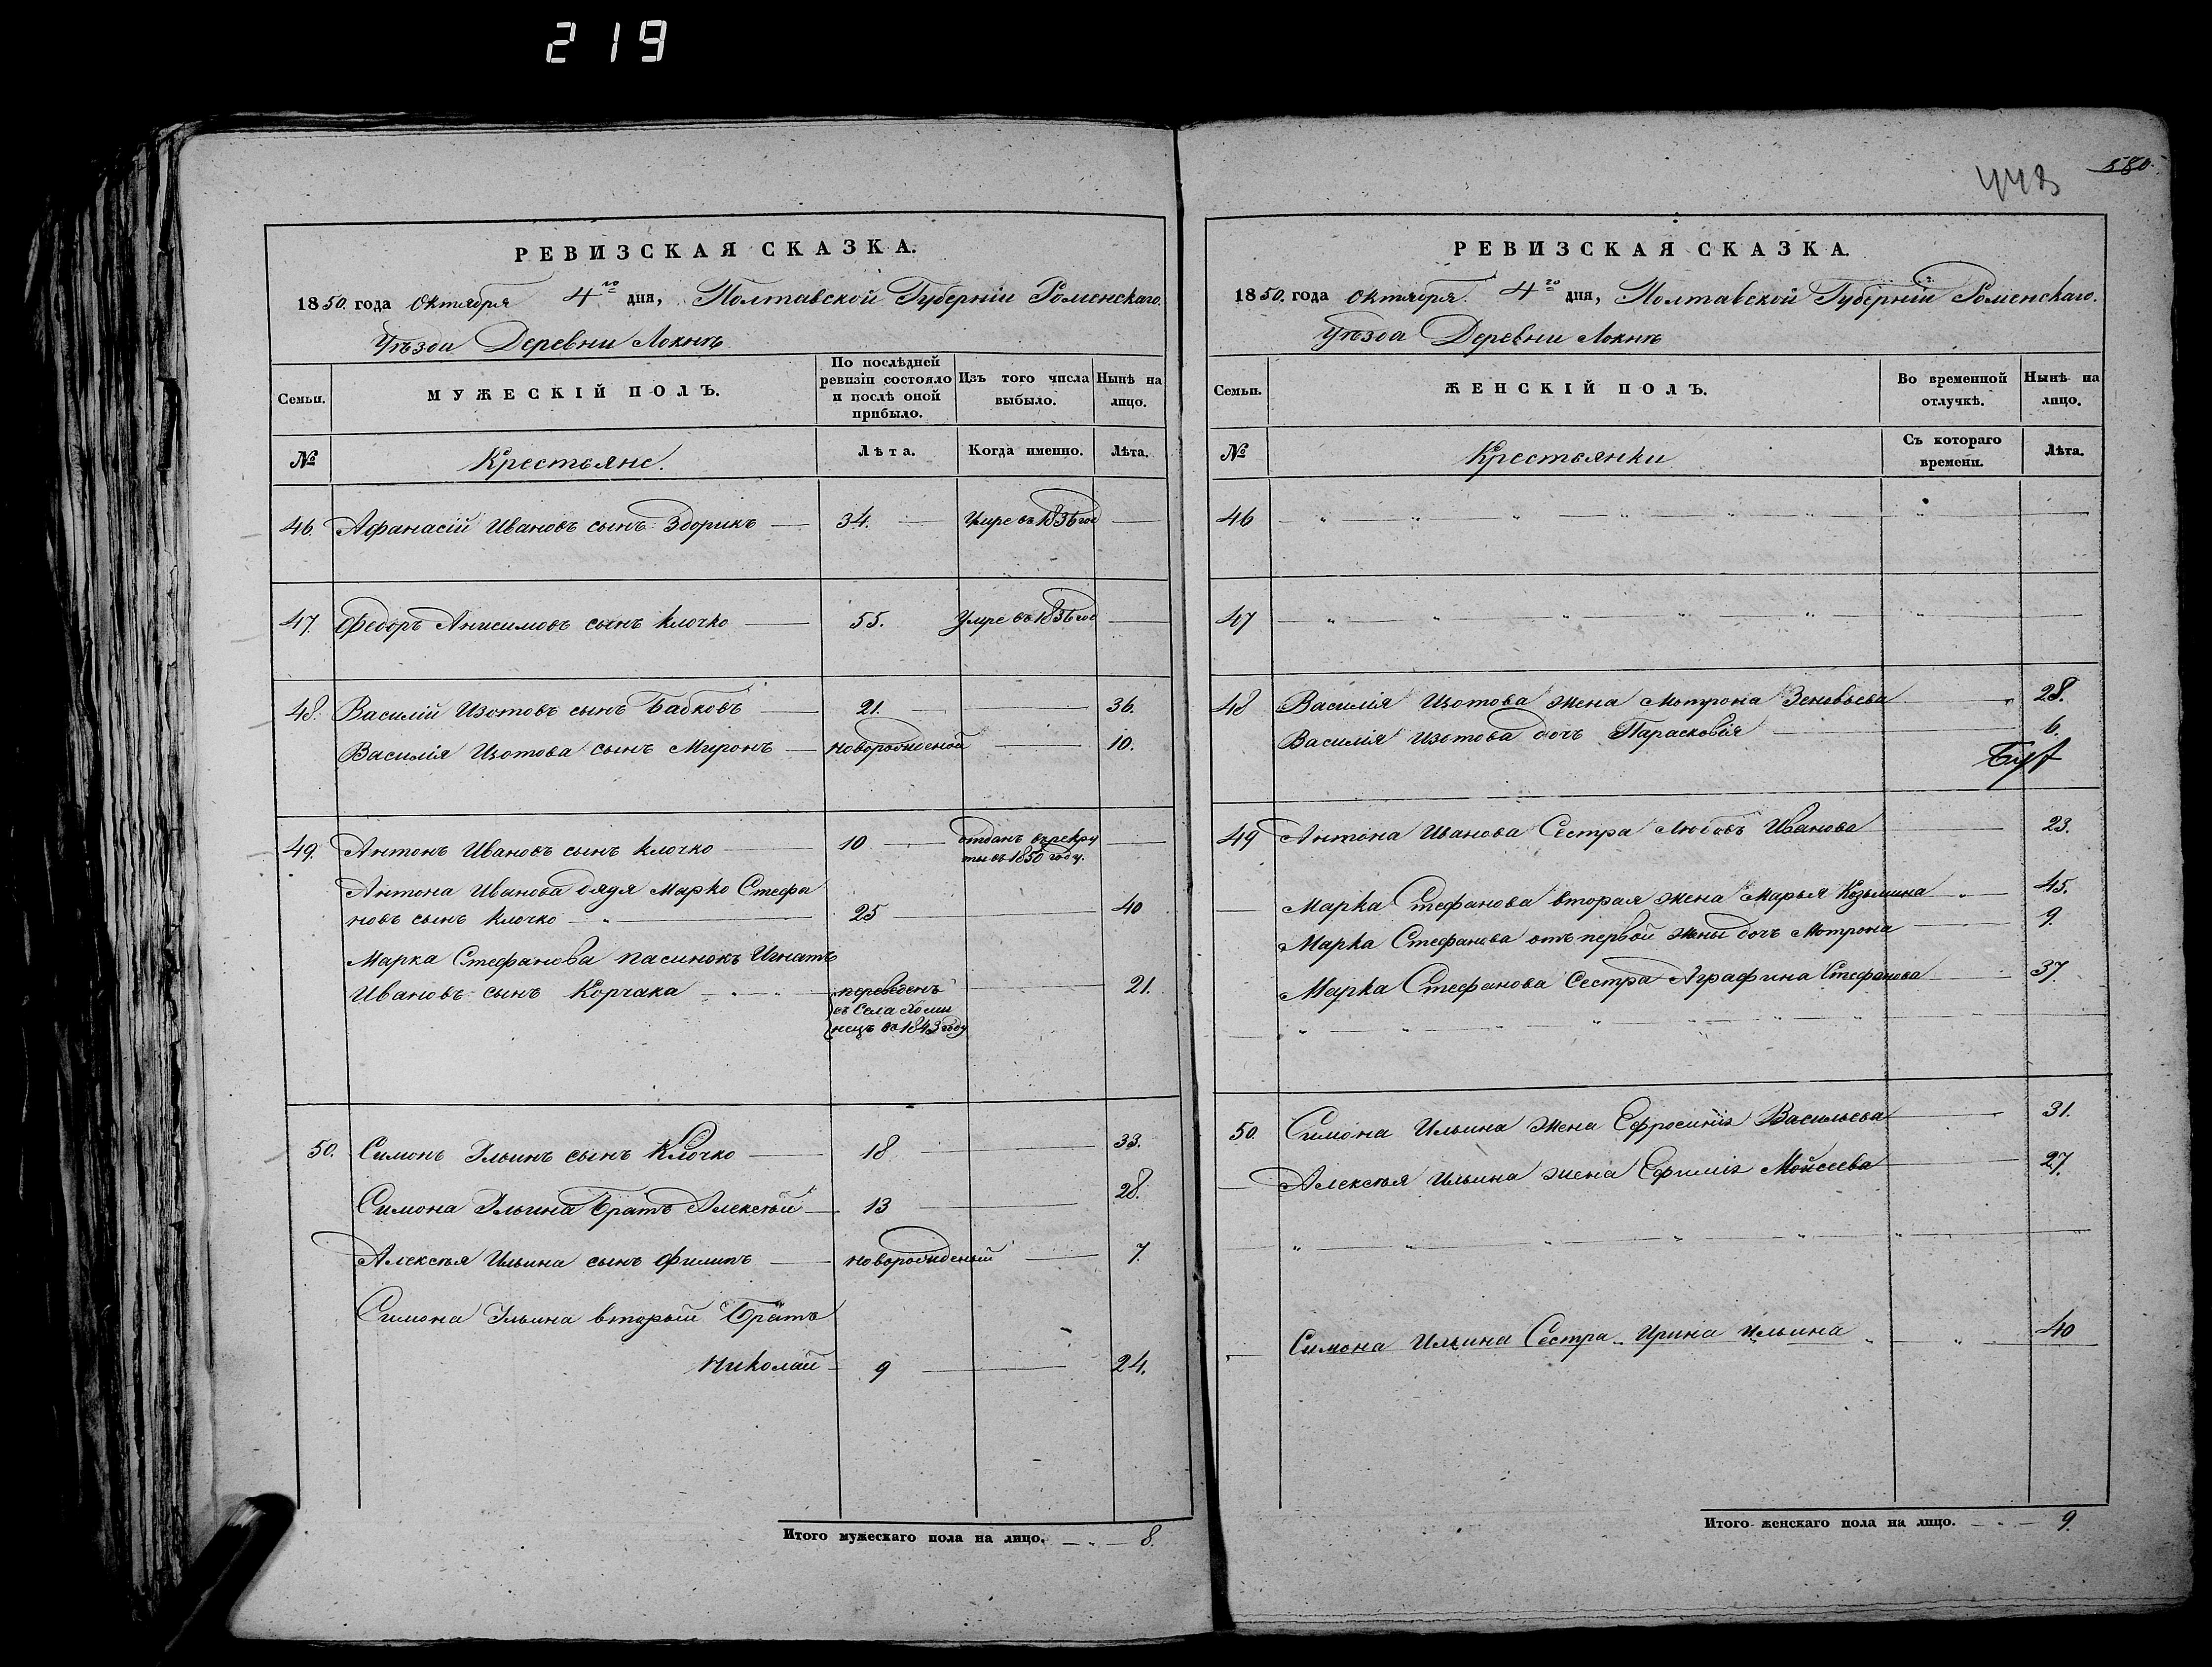 219
443
580.
РЕВИЗСКАЯ СКАЗКА.
1850. года Октября 4го дня, Полтавской Губерніи Роменскаго.
Уѣзда Деревни Локнѣ
Семьи.
МУЖЕСКІЙ ПОЛЪ.
По послѣдней ревизіи состояло и послѣ оной прибыло.
Изъ того числа выбыло.
Нынѣ на лицо.
№
Крестьяне.
Лѣта.
Когда именно.
Лѣта.
46. Афанасій Ивановъ сынъ Здорикъ — 34. — Умре въ 1836 год —
47. Федоръ Анисимовъ сынъ Клочко — 55. Умре въ 1836 год —
48. Василій Изотовъ сынъ Бабковъ — 21. — 36.
Василія Изотова сынъ Миронъ — новорожденой — 10.
49. Антонъ Ивановъ сынъ Клочко — 10 — отданъ в рекру
ты въ 1850 году. —
Антона Иванова дядя Марко Стефа
новъ сынъ Клочко — 25 — 40
Марка Стефанова пасинокъ Игнатъ
Ивановъ сынъ Корчака — переведенъ — 21.
съ Села Хоми
нецъ въ 1843 году
50. Симонъ Ильинъ сынъ Клочко — 18 — 33.
Симона Ильина Братъ Алексѣй — 13 — 28.
Алексѣя Ильина сынъ Филипъ — новорожденый — 7.
Симона Ильина вторый Братъ
Николай — 9 — 24.
Итого мужескаго пола на лицо. — 8.
РЕВИЗСКАЯ СКАЗКА.
1850. года Октября. 4го дня, Полтавской Губерніи Роменскаго.
Уѣзда Деревни Локнѣ
Семьи.
ЖЕНСКІЙ ПОЛЪ.
Во временной отлучкѣ.
Нынѣ на лицо.
№
Крестьянки
Съ котораго времени.
Лѣта.
46
47
48 Василія Изотова жена Мотрона Зеновьева — 28.
Василія Изотова дочь Парасковія — 6.
49 Антона Иванова Сестра Любовь Иванова — 23.
Марка Стефанова вторая жена Марья Козьмина — 45.
Марка Стефанова отъ первой жены дочь Мотрона — 9.
Марка Стефанова Сестра Аграфина Стефанова — 37.
50. Симона Ильина жена Ефросинія Васильева — 31.
Алексѣя Ильина жена Ефимія Мойсеева — 27.
Симона Ильина Сестра Ирина Ильина — 40
Итого женскаго пола на лицо. — 9.